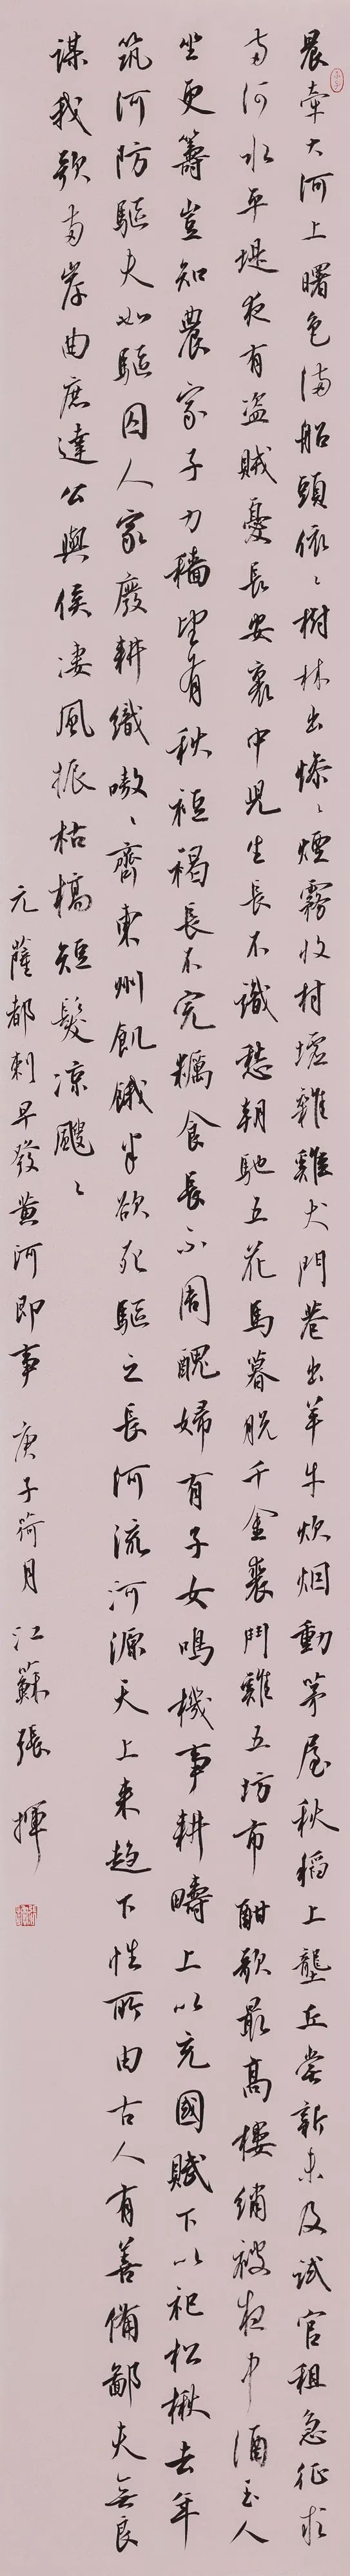 晨牽大河上曙色滿船頭依〻樹林出慘〻煙霧收村墟雜雞犬門巷出羊牛炊烟動茅屋秋稻上壟丘嘗新未及試官租急征求
兩河水平堤夜有盜賊憂長安裏中兒生長不識愁朝馳五花馬暮脫千金裘鬥雞五坊市酣歌最高樓繡被夜中酒玉人
坐更籌豈知農家子力穡望有秋裋褐長不完糲食長不周醜婦有子女鳴機事耕疇上以充國賦下以祀松楸去年
筑河防驅夫如驅囚人家廢耕織嗷〻齊東州飢餓半欲死驅之長河流河源天上来趨下性所由古人有善備鄙夫無良
謀我歌兩岸曲庶達公與侯凄風振枯槁短髮凉颼〻
元薩都剌早發黄河即事 庚子荷月 江蘇張揮